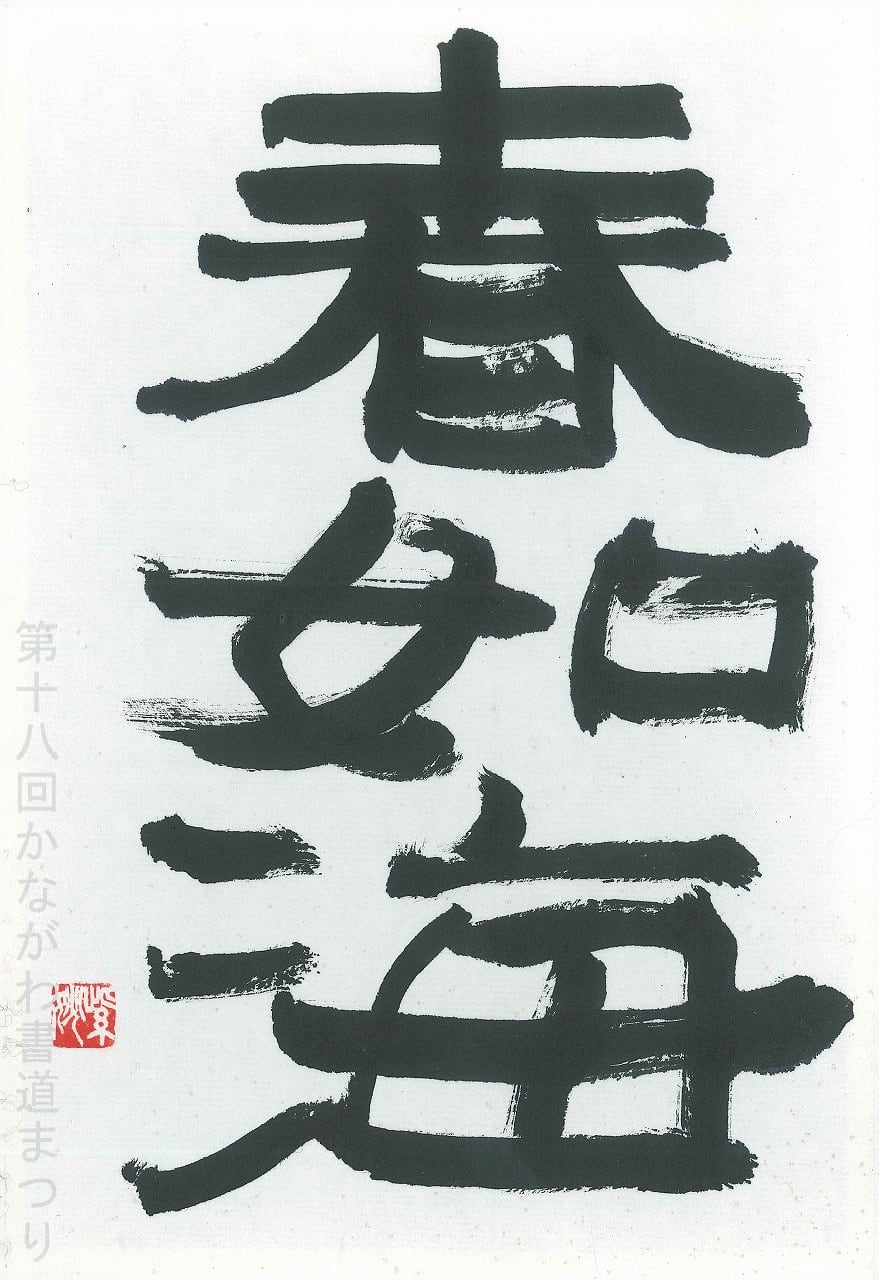 春如海
第十八回かながわ書道まつり